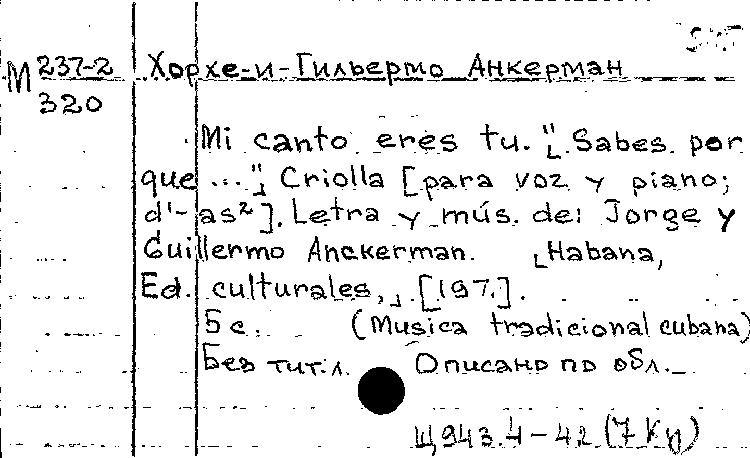 М 237-2 Хорхе-и-Гильермо Анкерман
320
Mi canto eres tu. "Sabes por
que ..." Criolla [para voz y piano;
d'-as²]. Letra y mús. de: Jorge y
Guillermo Anckerman. Habana,
Ed. culturales, [197.].
5 с. (Musica tradicional cubana)
Без тит.л. Описано по обл.
Щ943.4-42(7Ку)